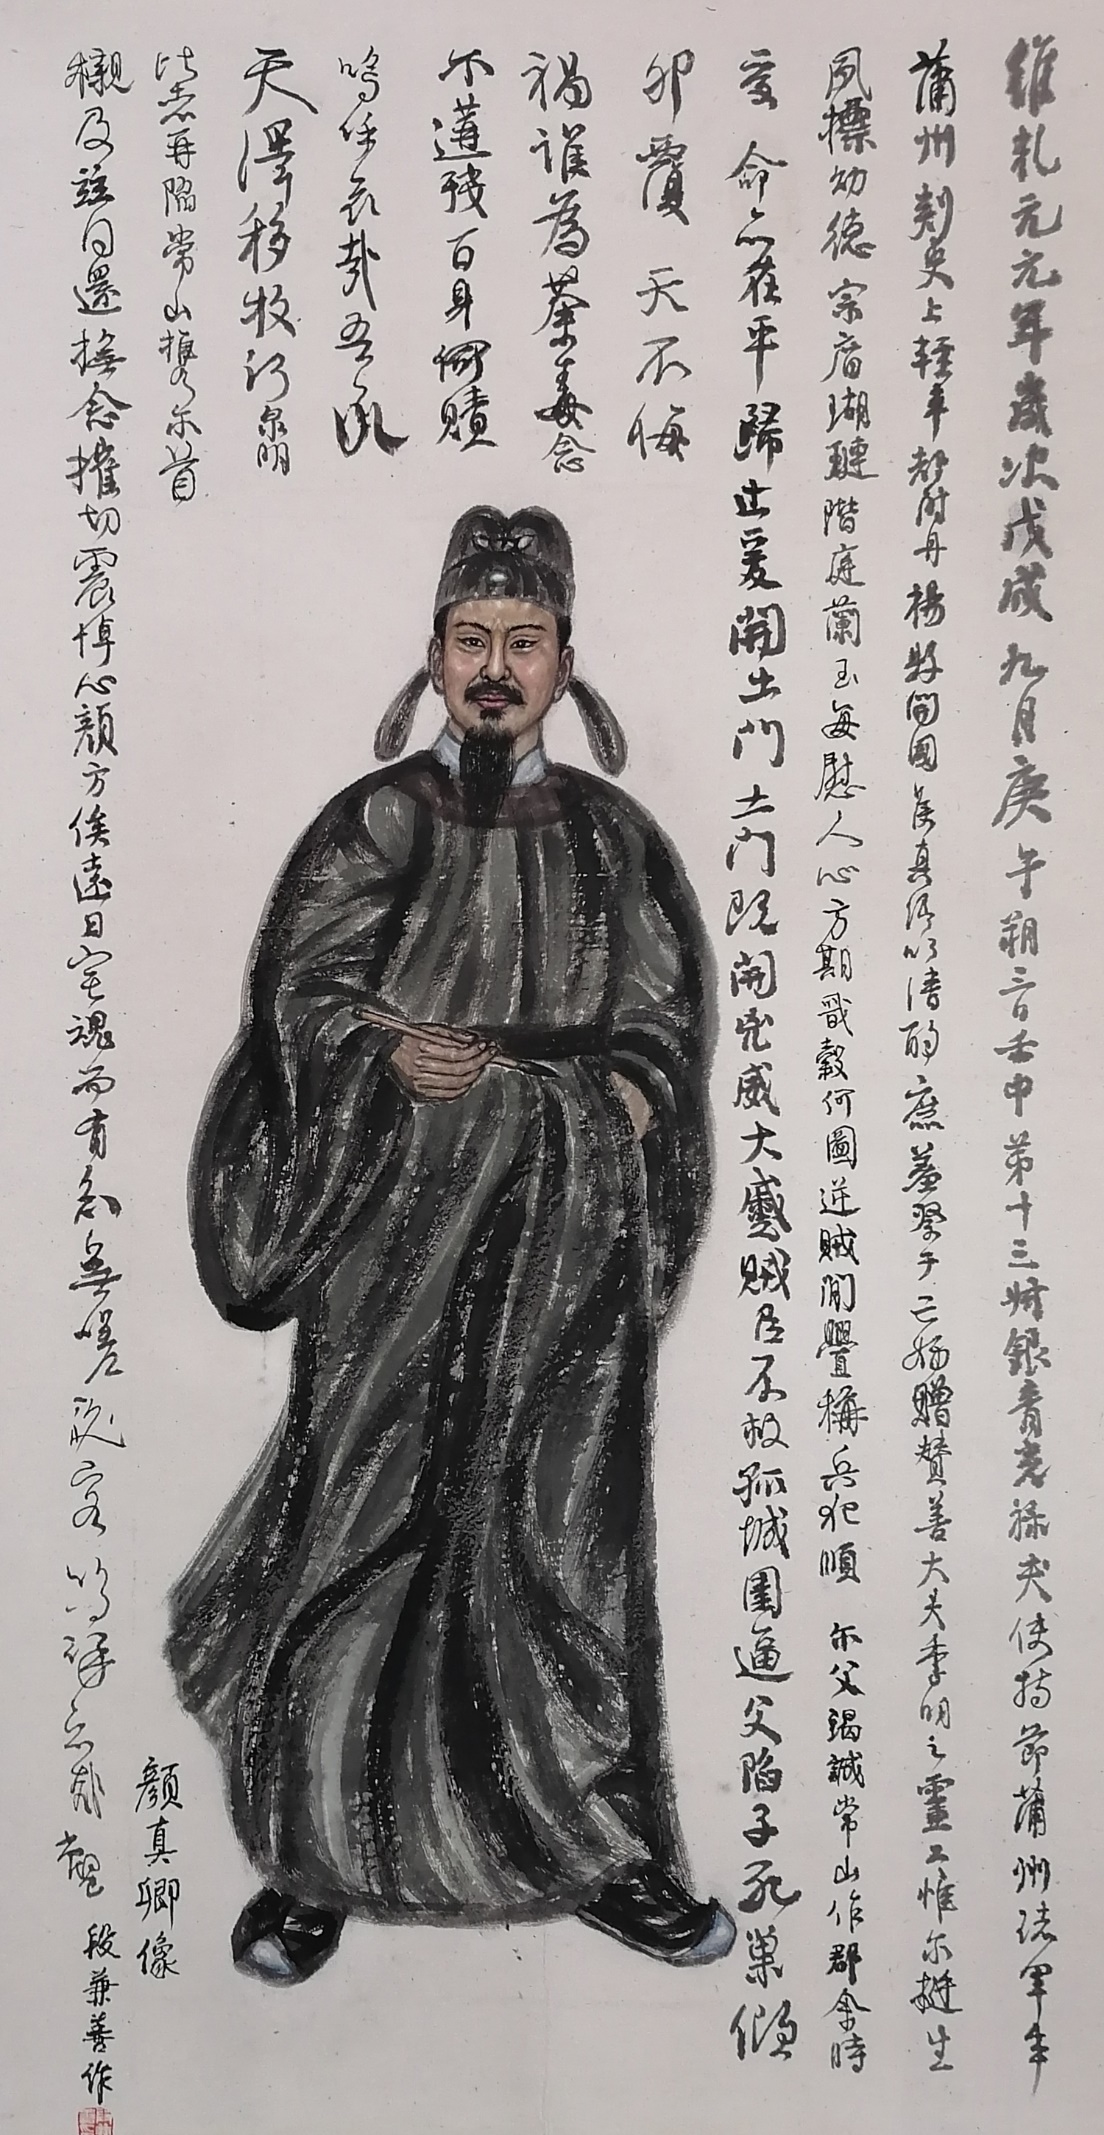 維乹元元年歲次戊戌九月庚午朔三日壬申第十三叔銀青光祿夫使持節蒲州諸軍事
蒲州刺史上輕車都尉丹楊縣開國侯真卿以清酌庶羞祭于亡姪贈贊善大夫季明之靈曰惟尔挺生
夙標幼德宗廟瑚璉階庭蘭玉每慰人心方期戩穀何圖逆賊間釁稱兵犯順尔父竭誠常山作郡余時
受命亦在平歸止爰開土門土門既開凶威大蹙賊臣不救孤城圍逼父陷子死巢傾
卵覆天不悔
禍誰為荼毒念
尔遘殘百身何贖
嗚呼哀哉吾承
天澤移牧河泉明
比者再陷常山攜尔首
櫬及茲同還撫念摧切震悼心顏方俟遠日宅魂而有知無嗟久客嗚呼哀哉尚饗
顏真卿像
段兼善作